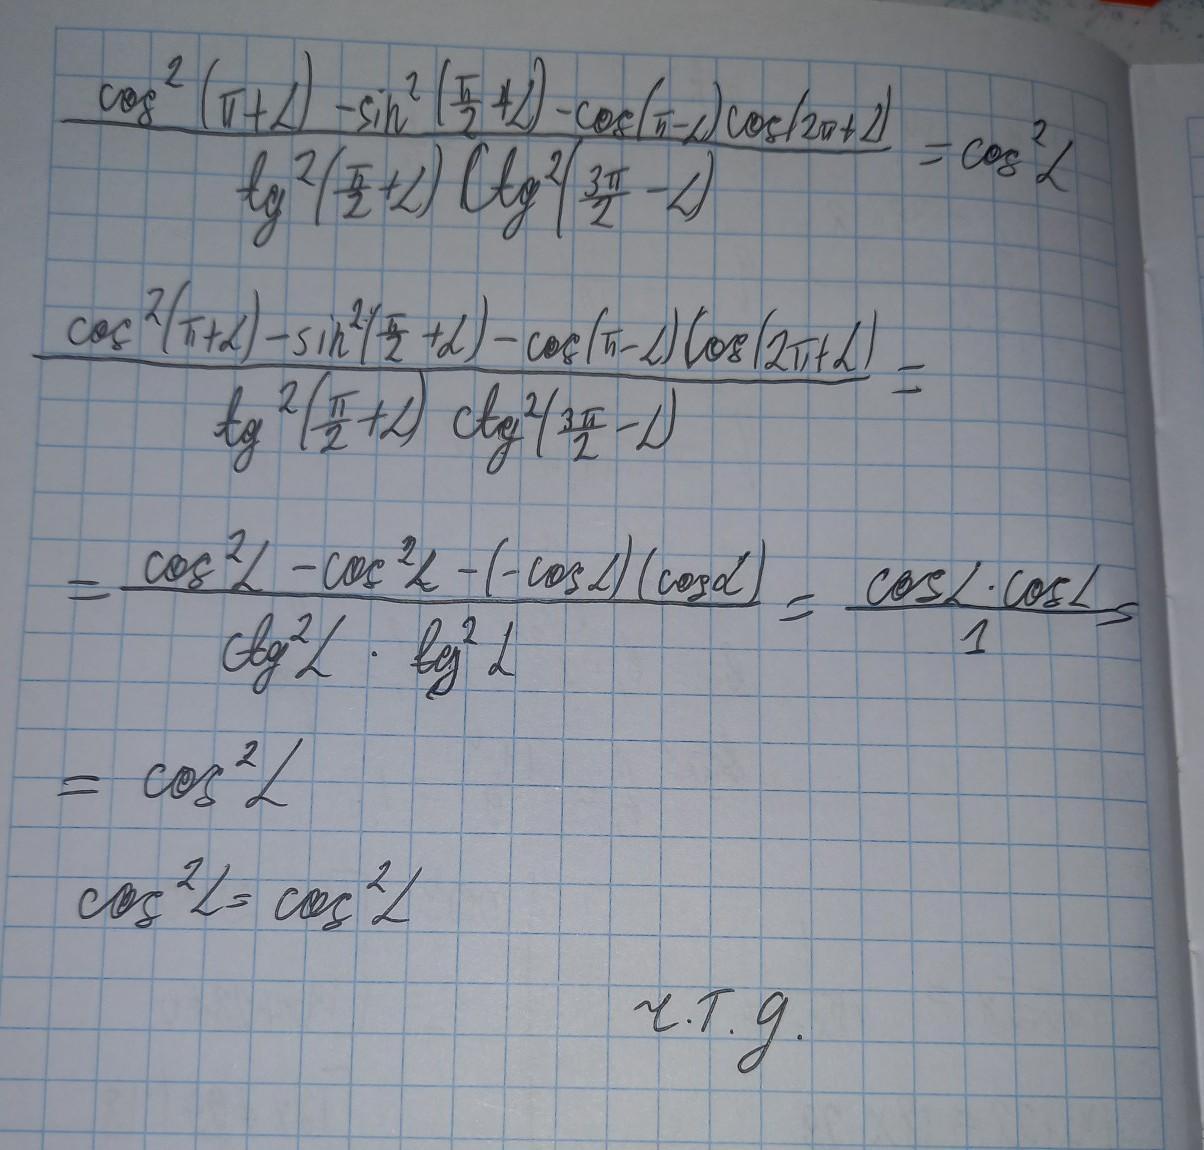 cos²(π+α) - sin²(π/2+α) - cos(π-α)cos(2π+α) / tg²(π/2+α) Ctg²(3π/2-α) = cos²α
cos²(π+α) - sin²(π/2+α) - cos(π-α)cos(2π+α) / tg²(π/2+α) ctg²(3π/2-α) =
= cos²α - cos²α - (-cosα)(cosα) / ctg²α · tg²α = cosα·cosα / 1 =
= cos²α
cos²α = cos²α
ч.т.д.